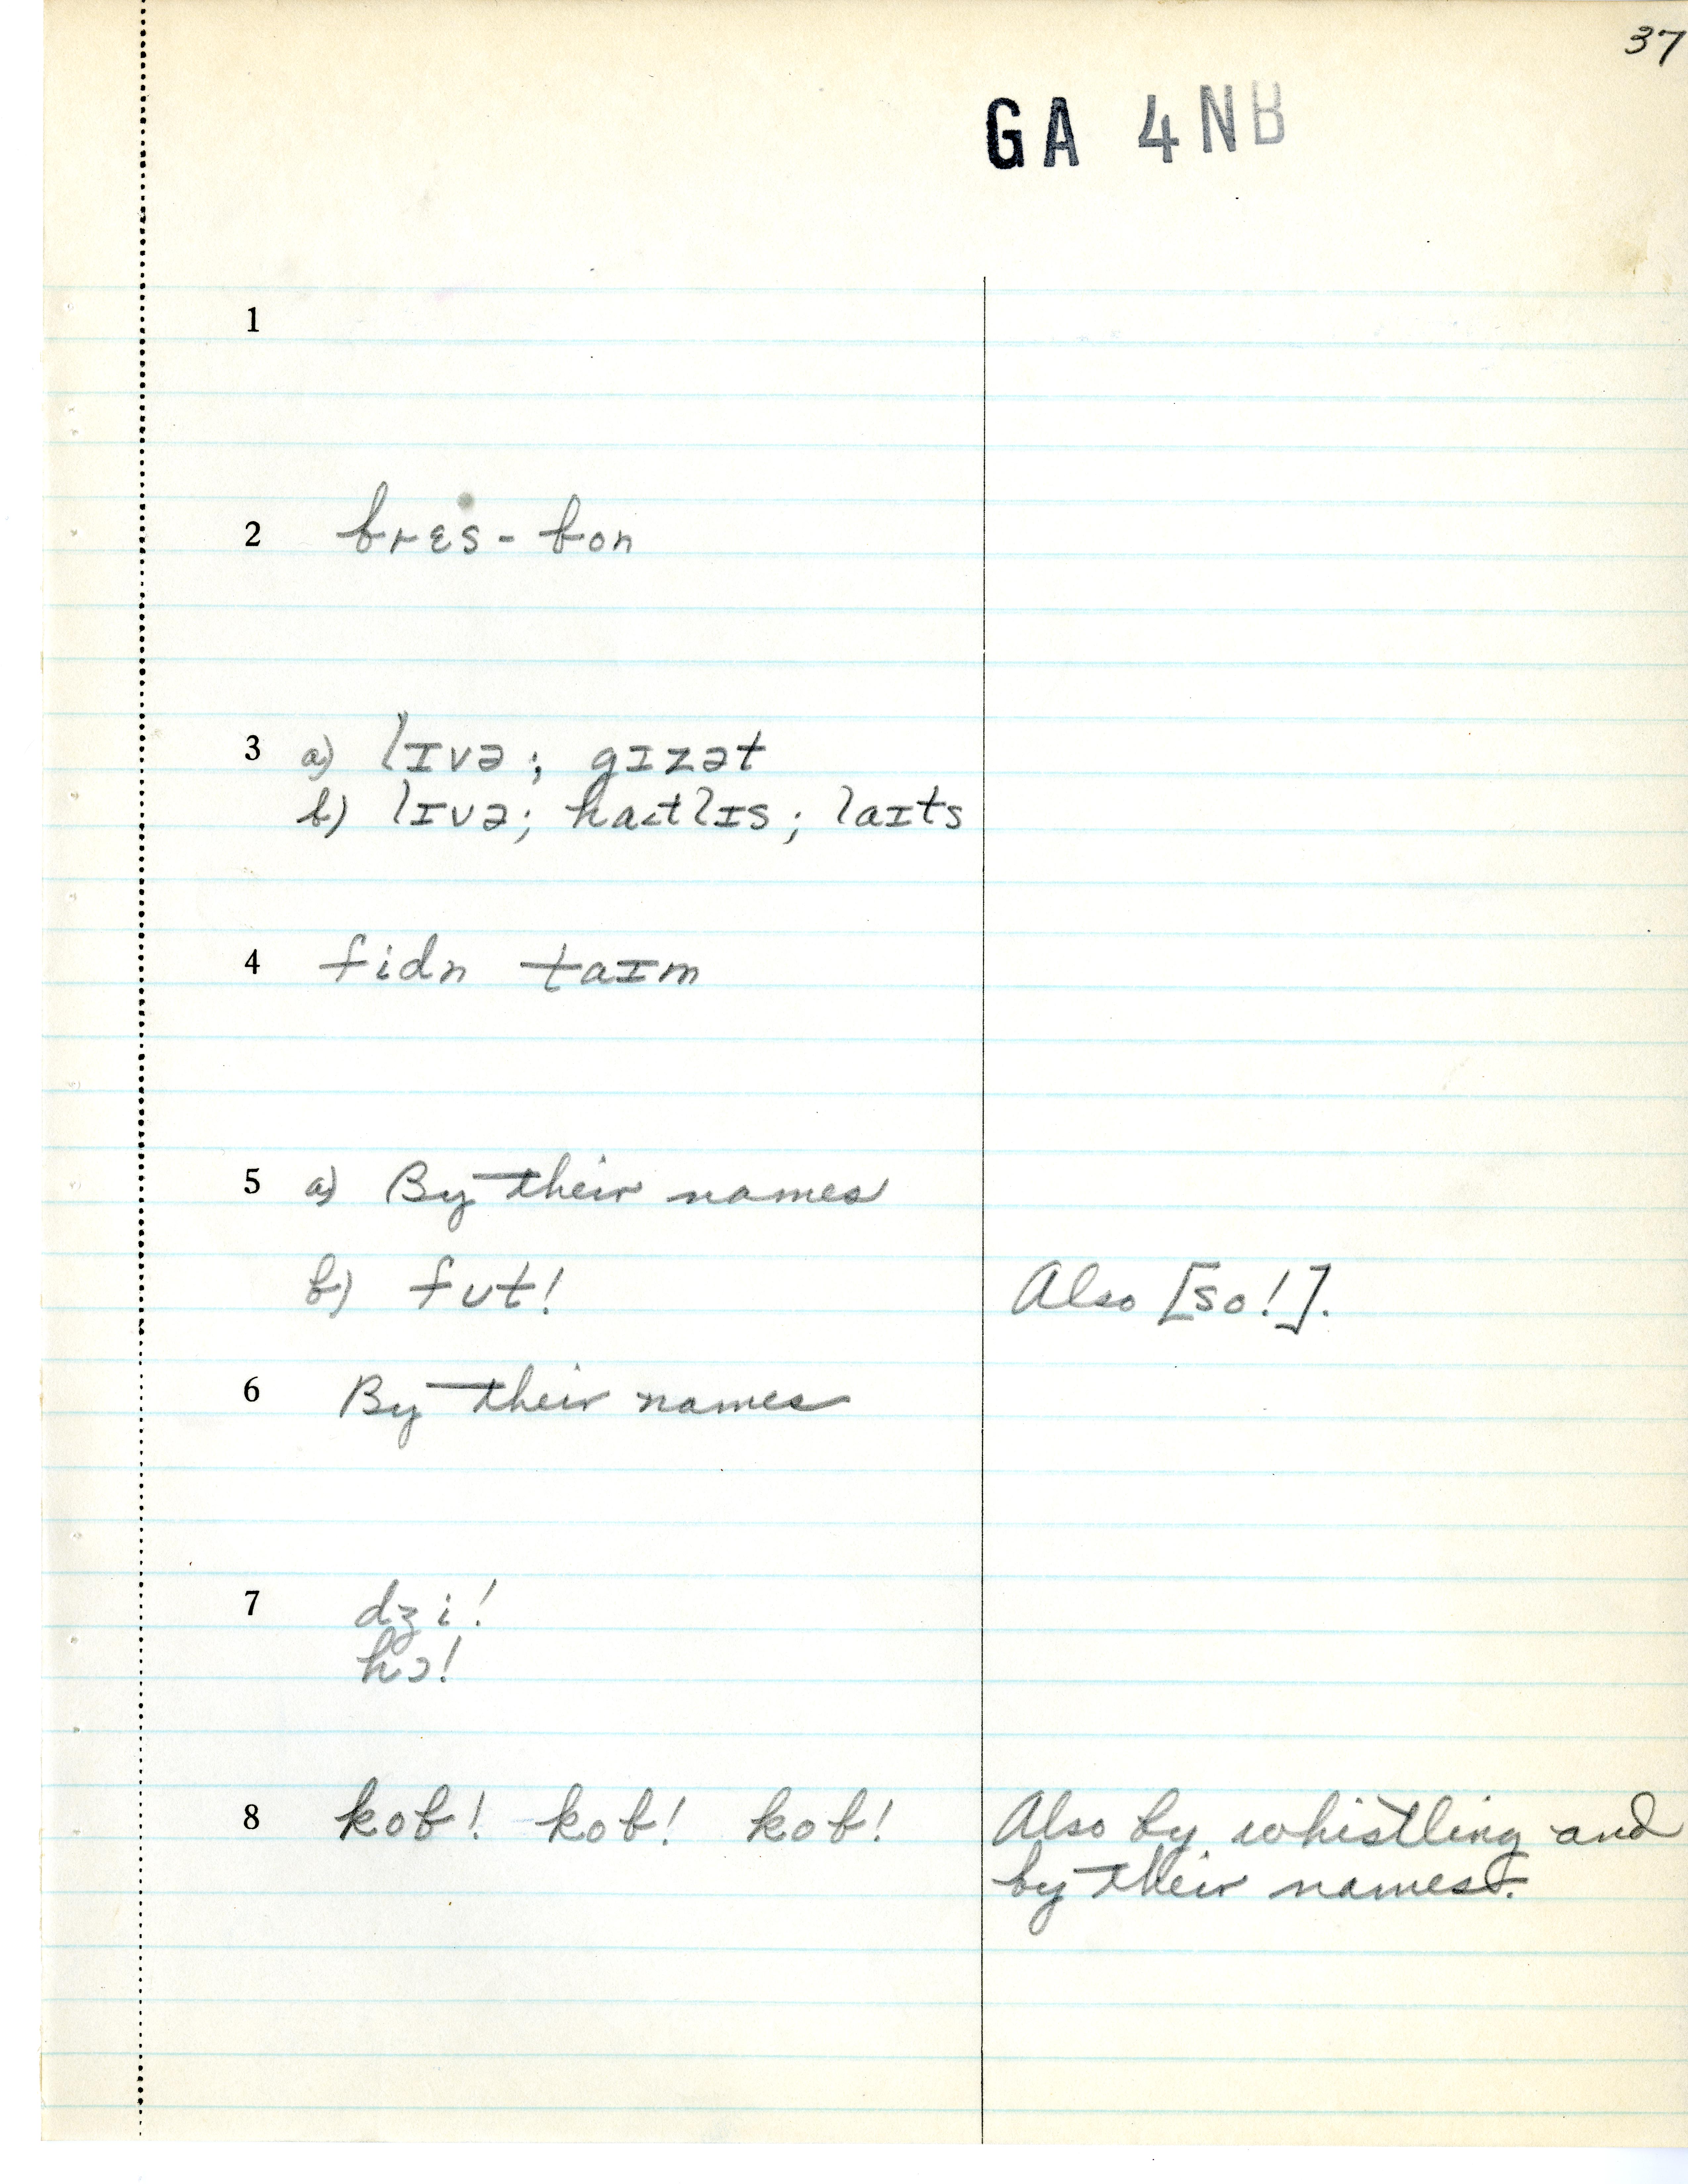 37
GA 4NB
1
2 brɛs - bon
3 a) lɪvə; gɪzət
b) lɪvə; haɪtlɪs; laɪts
4 fidn taɪm
5 a) By their names
b) fut! Also [so!].
6 By their names
7 dʒi!
hɔ!
8 kob! kob! kob! Also by whistling and
by their names.